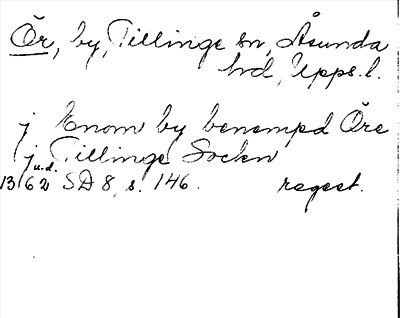 Ör, by, Tillinge sn, Åsunda
hd, Upps. l.
j Enom by benempd Öre
j Tillinge Sockn
u.d.
1362 SD 8, s. 146. regest.